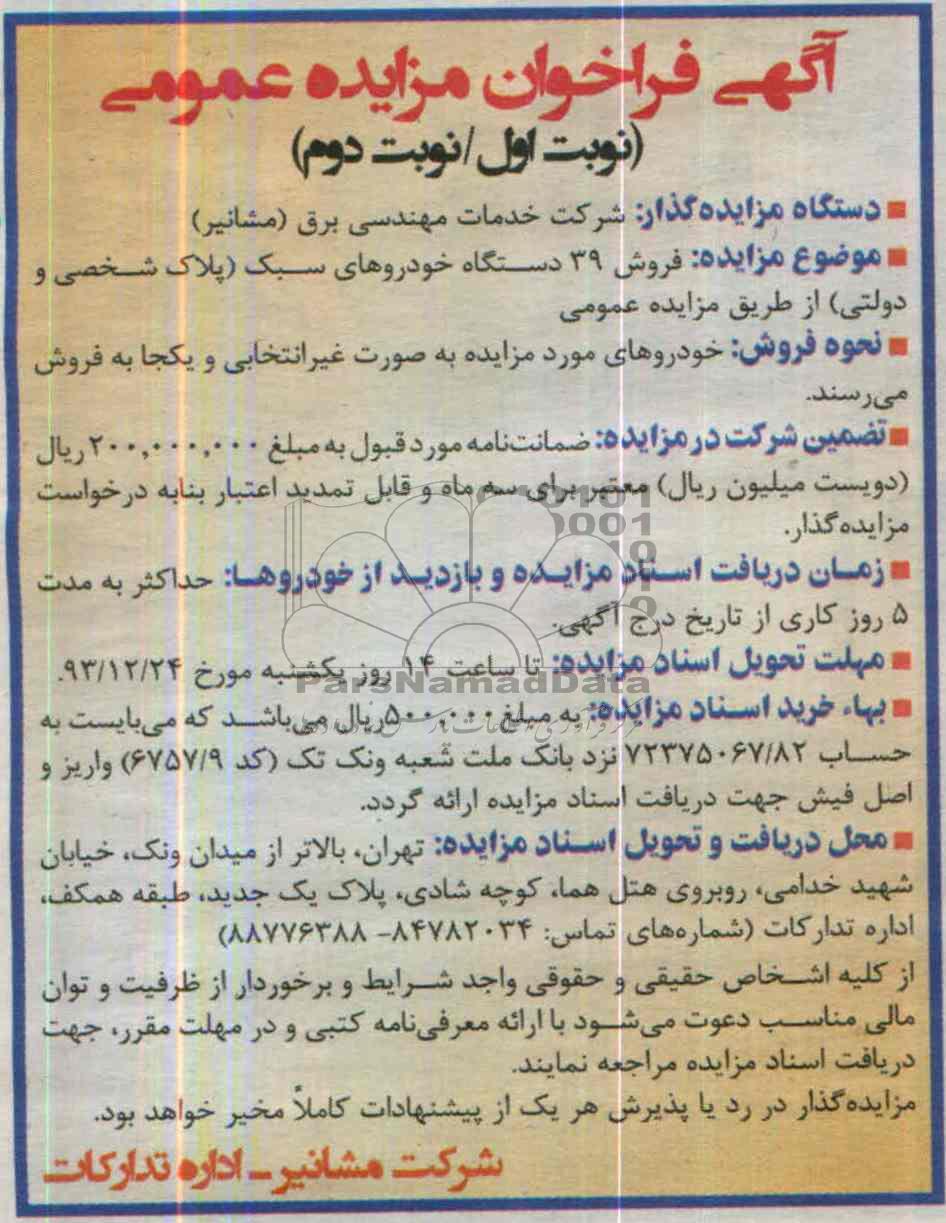 آگهی فراخوان مزایده عمومی
(نوبت اول/نوبت دوم)
■ دستگاه مزایده‌گذار: شرکت خدمات مهندسی برق (مشانیر)
■ موضوع مزایده: فروش ۳۹ دستگاه خودروهای سبک (پلاک شخصی و
دولتی) از طریق مزایده عمومی
■ نحوه فروش: خودروهای مورد مزایده به صورت غیرانتخابی و یکجا به فروش
می‌رسند.
■ تضمین شرکت در مزایده: ضمانت‌نامه مورد قبول به مبلغ ۲۰۰,۰۰۰,۰۰۰ ریال
(دویست میلیون ریال) معتبر برای سه ماه و قابل تمدید اعتبار بنابه درخواست
مزایده‌گذار.
■ زمان دریافت اسناد مزایده و بازدید از خودروها: حداکثر به مدت
۵ روز کاری از تاریخ درج آگهی.
■ مهلت تحویل اسناد مزایده: تا ساعت ۱۴ روز یکشنبه مورخ ۹۳/۱۲/۲۴.
ParsNamadData
■ بهاء خرید اسناد مزایده: به مبلغ ۵۰۰,۰۰۰ ریال می‌باشد که می‌بایست به
حساب ۷۲۳۷۵۰۶۷/۸۲ نزد بانک ملت شعبه ونک تک (کد ۶۷۵۷/۹) واریز و
اصل فیش جهت دریافت اسناد مزایده ارائه گردد.
■ محل دریافت و تحویل اسناد مزایده: تهران، بالاتر از میدان ونک، خیابان
شهید خدامی، روبروی هتل هما، کوچه شادی، پلاک یک جدید، طبقه همکف،
اداره تدارکات (شماره‌های تماس: ۸۴۷۸۲۰۳۴- ۸۸۷۷۶۳۸۸)
از کلیه اشخاص حقیقی و حقوقی واجد شرایط و برخوردار از ظرفیت و توان
مالی مناسب دعوت می‌شود با ارائه معرفی‌نامه کتبی و در مهلت مقرر، جهت
دریافت اسناد مزایده مراجعه نمایند.
مزایده‌گذار در رد یا پذیرش هر یک از پیشنهادات کاملاً مخیر خواهد بود.
شرکت مشانیر - اداره تدارکات